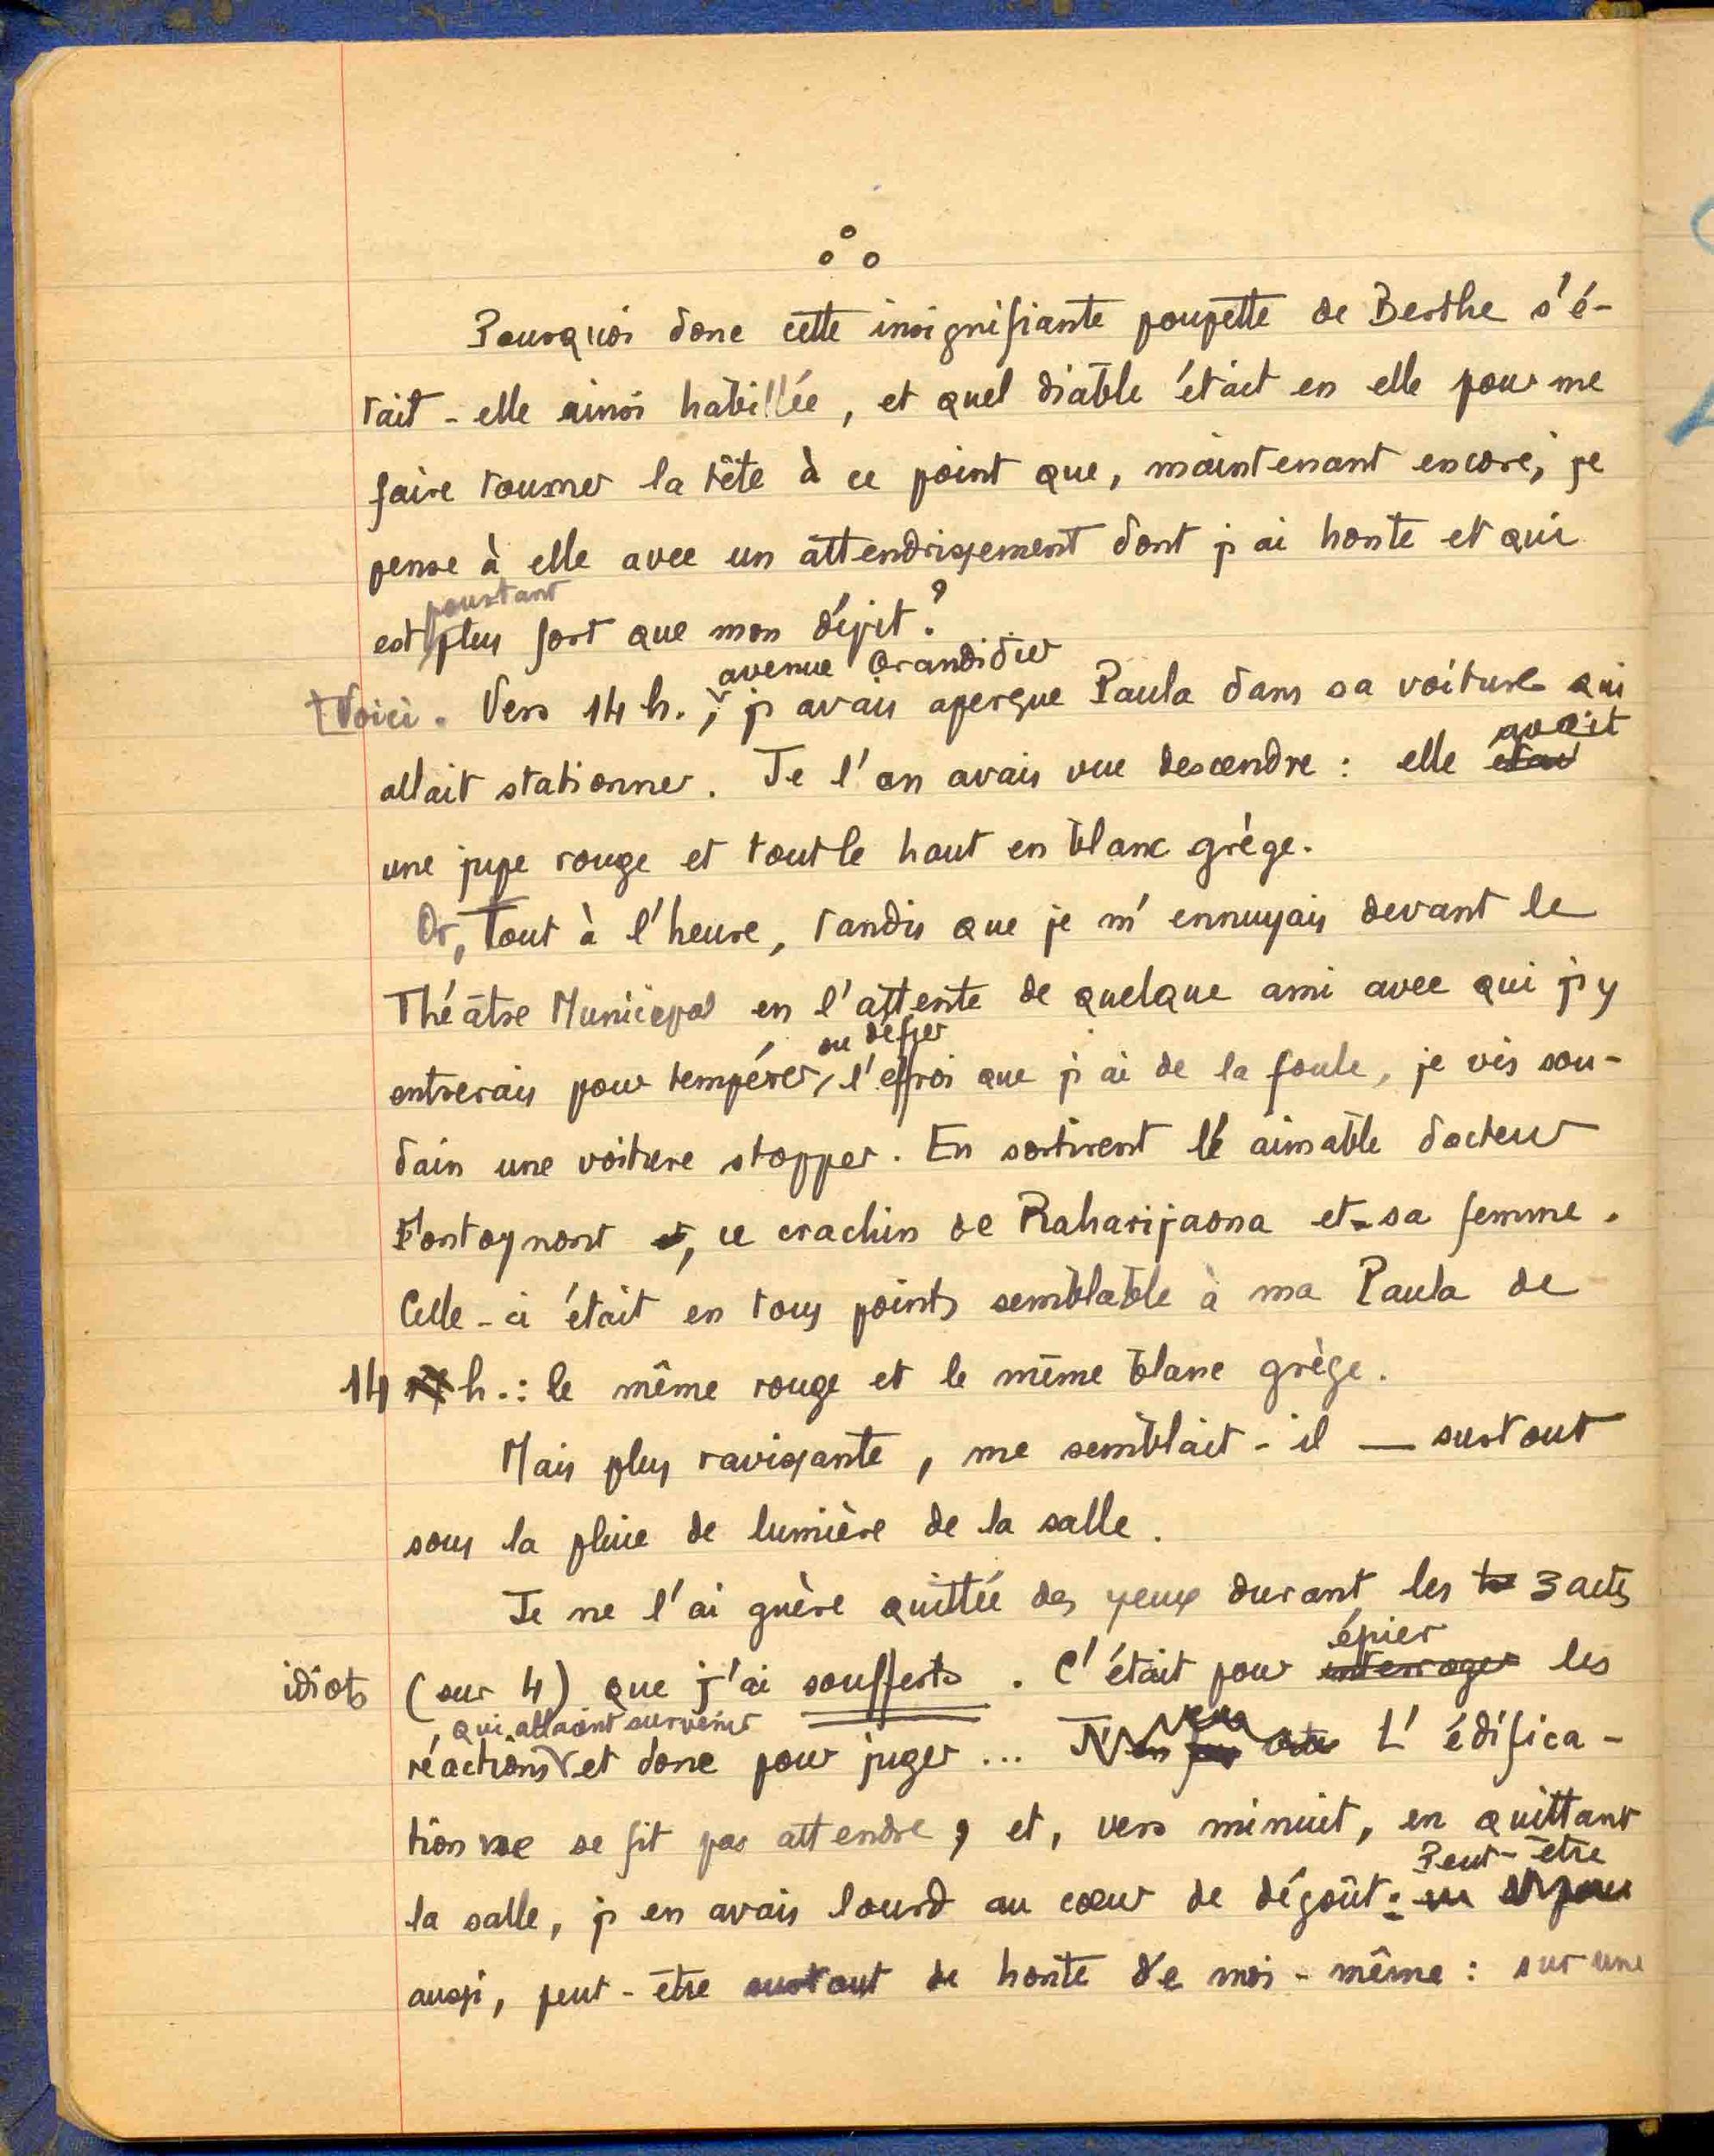 Pourquoi donc cette insignifiante poupette de Berthe s'é-
tait-elle ainsi habillée, et quel diable était en elle pour me
faire tourner la tête à ce point que, maintenant encore, je
pense à elle avec un attendrissement dont j'ai honte et qui
pourtant
est plus fort que mon dépit ?
avenue Grandidier
Voici. Vers 14 h., j'avais aperçue Paula dans sa voiture qui
avait
allait stationner. Je l'en avais vue descendre : elle etait
une jupe rouge et tout le haut en blanc grège.
Or, Tout à l'heure, tandis que je m'ennuyais devant le
Théâtre Municipal en l'attente de quelque ami avec qui j'y
ou défier
entrerais pour tempérer, l'effroi que j'ai de la foule, je vis sou-
dain une voiture stopper. En sortirent l'aimable docteur
Fontoynont et, ce crachin de Raharijaona et sa femme.
Celle-ci était en tous points semblable à ma Paula de
14 h. : le même rouge et le même blanc grège.
Mais plus ravissante, me semblait-il — surtout
sous la pluie de lumière de la salle.
Je ne l'ai guère quittée des yeux durant les 3 actes
épier
idiots (sur 4) que j'ai soufferts. C'était pour interroger les
, qui allaient survenir
réactions et donc pour juger... L'édifica-
tion ne se fit pas attendre, et, vers minuit, en quittant
Peut-être
la salle, j'en avais lourd au cœur de dégoût :
aussi, peut-être surtout de honte de moi-même : sur une